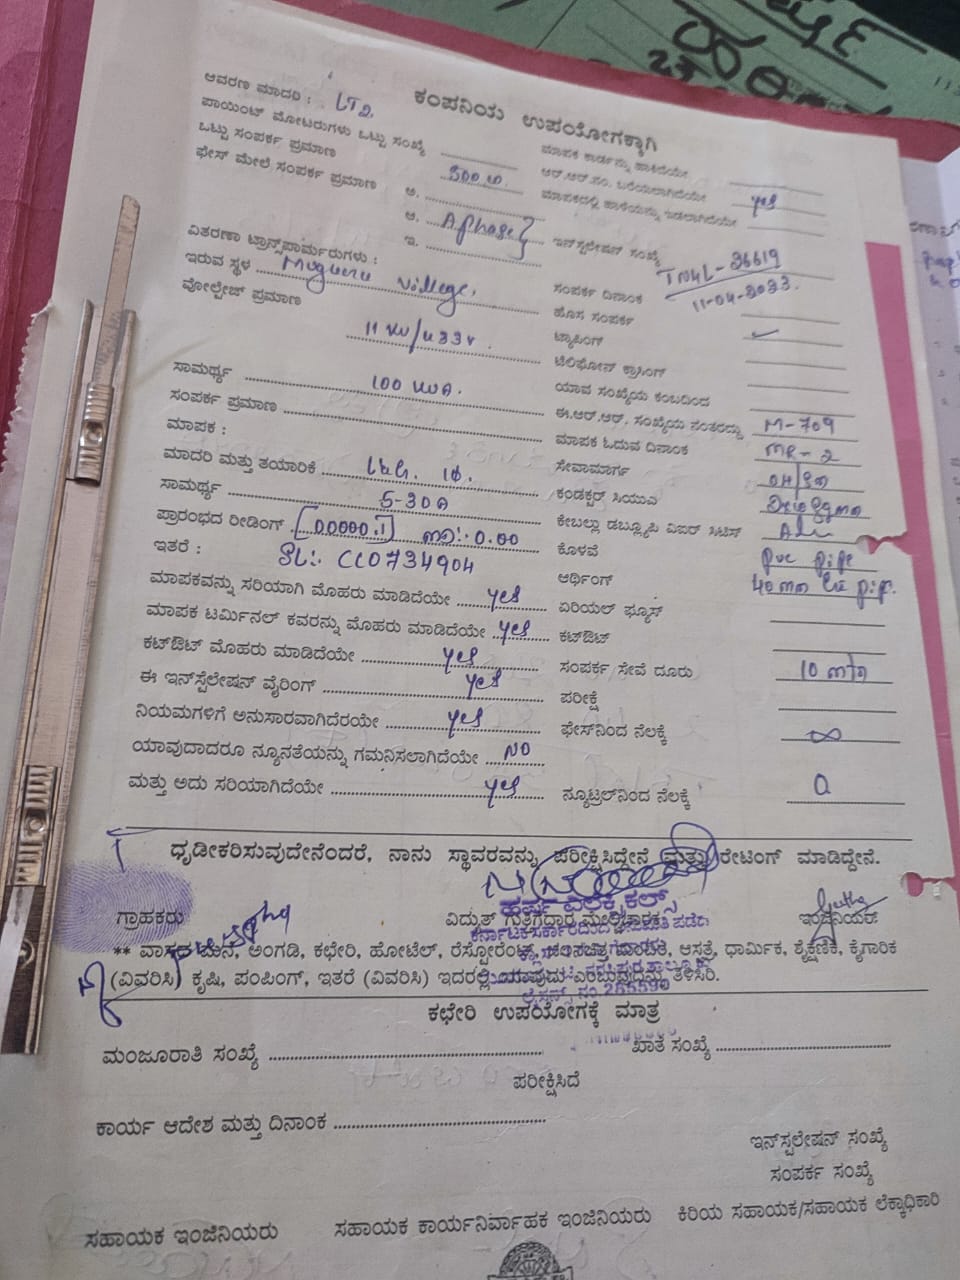 ಕಂಪನಿಯ ಉಪಯೋಗಕ್ಕಾಗಿ
ಆವರಣ ಮಾದರಿ : LT2
ಪಾಯಿಂಟ್ ಮೋಟರುಗಳು ಒಟ್ಟು ಸಂಖ್ಯೆ
ಒಟ್ಟು ಸಂಪರ್ಕ ಪ್ರಮಾಣ 500 w.
ಫೇಸ್ ಮೇಲೆ ಸಂಪರ್ಕ ಪ್ರಮಾಣ ಅ.
ಆ. A phase
ಇ.
ವಿತರಣಾ ಟ್ರಾನ್ಸ್‌ಫಾರ್ಮರುಗಳು :
ಇರುವ ಸ್ಥಳ Muguru Village,
ವೋಲ್ಟೇಜ್ ಪ್ರಮಾಣ
11 KV/433V.
ಸಾಮರ್ಥ್ಯ 100 KVA.
ಸಂಪರ್ಕ ಪ್ರಮಾಣ
ಮಾಪಕ :
ಮಾದರಿ ಮತ್ತು ತಯಾರಿಕೆ L&G. 1Φ.
ಸಾಮರ್ಥ್ಯ 5-30A
ಪ್ರಾರಂಭದ ರೀಡಿಂಗ್ 00000.1 0.00
ಇತರೆ : SL:. CC0734904
ಮಾಪಕವನ್ನು ಸರಿಯಾಗಿ ಮೊಹರು ಮಾಡಿದೆಯೇ yes
ಮಾಪಕ ಟರ್ಮಿನಲ್ ಕವರನ್ನು ಮೊಹರು ಮಾಡಿದೆಯೇ yes
ಕಟ್‌ಔಟ್ ಮೊಹರು ಮಾಡಿದೆಯೇ yes
ಈ ಇನ್‌ಸ್ಟಲೇಷನ್ ವೈರಿಂಗ್ yes
ನಿಯಮಗಳಿಗೆ ಅನುಸಾರವಾಗಿದೆರಯೇ yes
ಯಾವುದಾದರೂ ನ್ಯೂನತೆಯನ್ನು ಗಮನಿಸಲಾಗಿದೆಯೇ NO
ಮತ್ತು ಅದು ಸರಿಯಾಗಿದೆಯೇ yes
ಮಾಪಕ ಕಾರ್ಡನ್ನು ಹಾಕಿದೆಯೇ
ಆರ್.ಆರ್.ನಂ. ಬರೆಯಲಾಗಿದೆಯೇ yes
ಇನ್‌ಸ್ಟಲೇಷನ್ ಸಂಖ್ಯೆ TM4L-26619
ಸಂಪರ್ಕ ದಿನಾಂಕ 11-04-2023.
ಹೊಸ ಸಂಪರ್ಕ
ಟ್ಯಾಪಿಂಗ್
ಟೆಲಿಫೋನ್ ಕ್ರಾಸಿಂಗ್
ಯಾವ ಸಂಖ್ಯೆಯ ಕಂಬದಿಂದ
ಈ.ಆರ್.ಆರ್. ಸಂಖ್ಯೆಯ ನಂತರದ್ದು M-709
ಮಾಪಕ ಓದುವ ದಿನಾಂಕ MR-2
ಸೇವಾಮಾರ್ಗ
ಕಂಡಕ್ಟರ್ ಸಿಯುವಿ
ಕೊಳವೆ pvc pipe
ಆರ್ಥಿಂಗ್ 40mm GI pip.
ಏರಿಯಲ್ ಫ್ಯೂಸ್
ಕಟ್‌ಔಟ್
ಸಂಪರ್ಕ ಸೇವೆ ದೂರು 10 mtr
ಪರೀಕ್ಷೆ
ಫೇಸ್‌ನಿಂದ ನೆಲಕ್ಕೆ ∞
ನ್ಯೂಟ್ರಲ್‌ನಿಂದ ನೆಲಕ್ಕೆ 0
ಧೃಡೀಕರಿಸುವುದೇನೆಂದರೆ, ನಾನು ಸ್ಥಾವರವನ್ನು ಪರೀಕ್ಷಿಸಿದ್ದೇನೆ ಮತ್ತು ರೇಟಿಂಗ್ ಮಾಡಿದ್ದೇನೆ.
ಹರ್ಷ ಎಲೆಕ್ಟ್ರಿಕಲ್ಸ್
ಗ್ರಾಹಕರು ವಿದ್ಯುತ್ ಗುತ್ತಿಗೆದಾರ ಮೇಲ್ವಿಚಾರಕ ಇಂಜಿನಿಯರ್
** ವಾಸದ ಮನೆ, ಅಂಗಡಿ, ಕಛೇರಿ, ಹೋಟೆಲ್, ರೆಸ್ಟೋರೆಂಟ್, ಆಸ್ಪತ್ರೆ, ಧಾರ್ಮಿಕ, ಶೈಕ್ಷಣಿಕ, ಕೈಗಾರಿಕ
(ವಿವರಿಸಿ) ಕೃಷಿ, ಪಂಪಿಂಗ್, ಇತರೆ (ವಿವರಿಸಿ) ಇದರಲ್ಲಿ ಯಾವುದು ಎಂಬುವುದನ್ನು ತಿಳಿಸಿರಿ.
ಕಛೇರಿ ಉಪಯೋಗಕ್ಕೆ ಮಾತ್ರ
ಮಂಜೂರಾತಿ ಸಂಖ್ಯೆ ಖಾತೆ ಸಂಖ್ಯೆ
ಪರೀಕ್ಷಿಸಿದೆ
ಕಾರ್ಯ ಆದೇಶ ಮತ್ತು ದಿನಾಂಕ
ಇನ್‌ಸ್ಟಲೇಷನ್ ಸಂಖ್ಯೆ
ಸಂಪರ್ಕ ಸಂಖ್ಯೆ
ಸಹಾಯಕ ಇಂಜಿನಿಯರು ಸಹಾಯಕ ಕಾರ್ಯನಿರ್ವಾಹಕ ಇಂಜಿನಿಯರು ಕಿರಿಯ ಸಹಾಯಕ/ಸಹಾಯಕ ಲೆಕ್ಕಾಧಿಕಾರಿ